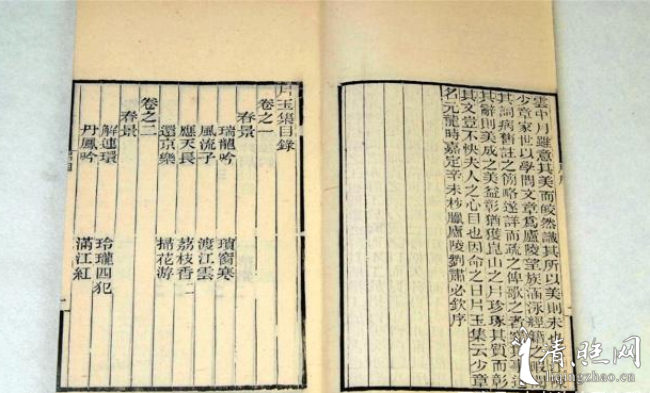 雲中月雖意其美而皎然識其所以美則未也
少章家世以學問文章爲廬陵望族涵泳經籍之暇閱
其詞病舊註之簡略遂詳而疏之俾歌之者究其事達
其辭則美成之美益彰猶獲崑山之片珍琢其質而彰
其文豈不快夫人之心目也因命之曰片玉集云少章
名元龍時嘉定辛未杪臘廬陵劉肅必欽序
片玉集目錄
卷之一
春景
瑞龍吟 瑣窗寒
風流子 渡江雲
應天長 荔枝香二
還京樂 掃花游
卷之二
春景
解連環 玲瓏四犯
丹鳳吟 滿江紅